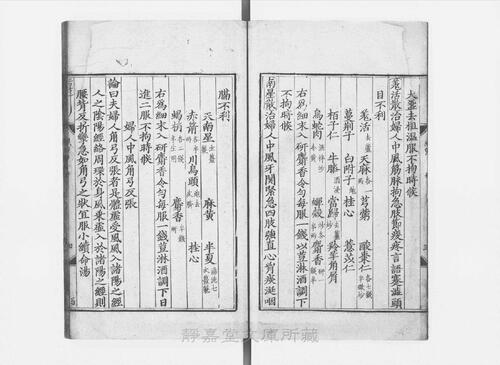 大盞去柤溫服不拘時候
羌活散治婦人中風筋脉拘急肢節痠疼言語蹇澁頭
目不利
羌活 天麻 芎藭 酸棗仁
蔓荊子 白附子 桂心 薏苡仁
栀子仁 牛膝 當歸 羚羊角屑
烏蛇肉 蟬殼 麝香
右爲細末入研麝香令勻每服一錢以豆淋酒調下
不拘時候
南星散治婦人中風牙關緊急四肢強直心胷痰涎咽
膈不利
天南星 麻黃 半夏
赤箭 川烏頭 桂心
蝎梢 麝香
右爲細末入研麝香令勻每服一錢豆淋酒調下日
進二服不拘時候
婦人中風角弓反張
論曰夫婦人角弓反張者是體虛受風風入諸陽之經
人之陰陽經絡周環於身風邪乘虛入於諸陽之經則
腰背反折攣急如角弓之狀宜服小續命湯
靜嘉堂文庫所藏